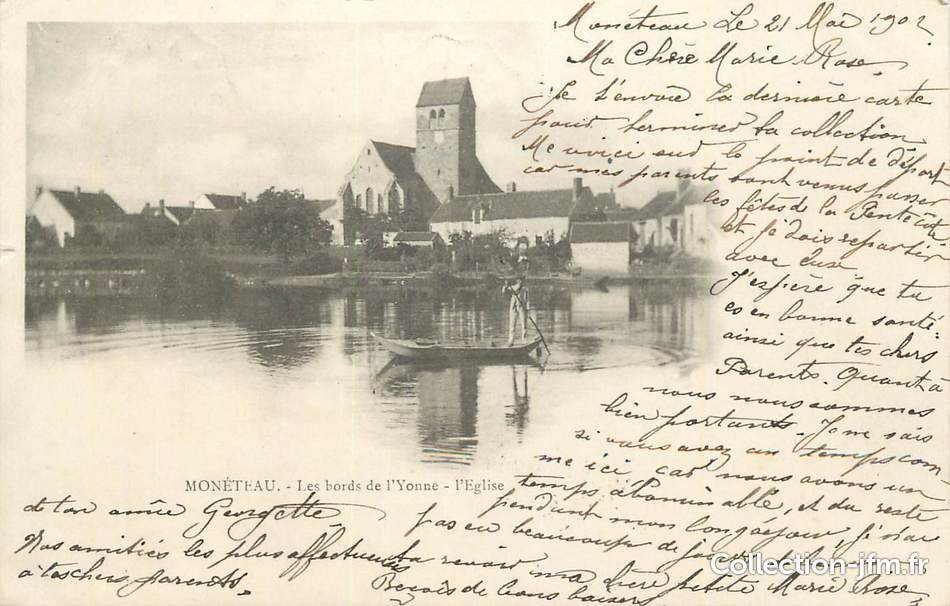 Monéteau Le 21 Mai 1902
Ma Chère Marie Rose,
Je t'envoie la dernière carte
pour terminer ta collection
Me voici sur le point de départ
car mes parents sont venus passer
les fêtes de la Pentecôte
et je dois repartir
avec eux
J'espère que tu
es en bonne santé
ainsi que tes chers
Parents. Quant à
nous nous sommes
bien portants. Je ne sais
si vous avez un temps com
me ici car nous avons un
temps abominable, et du reste
pendant mon long séjour, j'ai
pas eu beaucoup de
revoir ma chère petite Marie Rose
Reçois de bons baisers
de ton amie Georgette
Nos amitiés les plus affectueuses
à tes chers parents
MONÉTEAU. - Les bords de l'Yonne - l'Eglise
Collection-jfm.fr